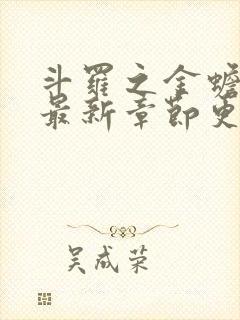 斗羅之金蟾
最新章節更
吴成荣